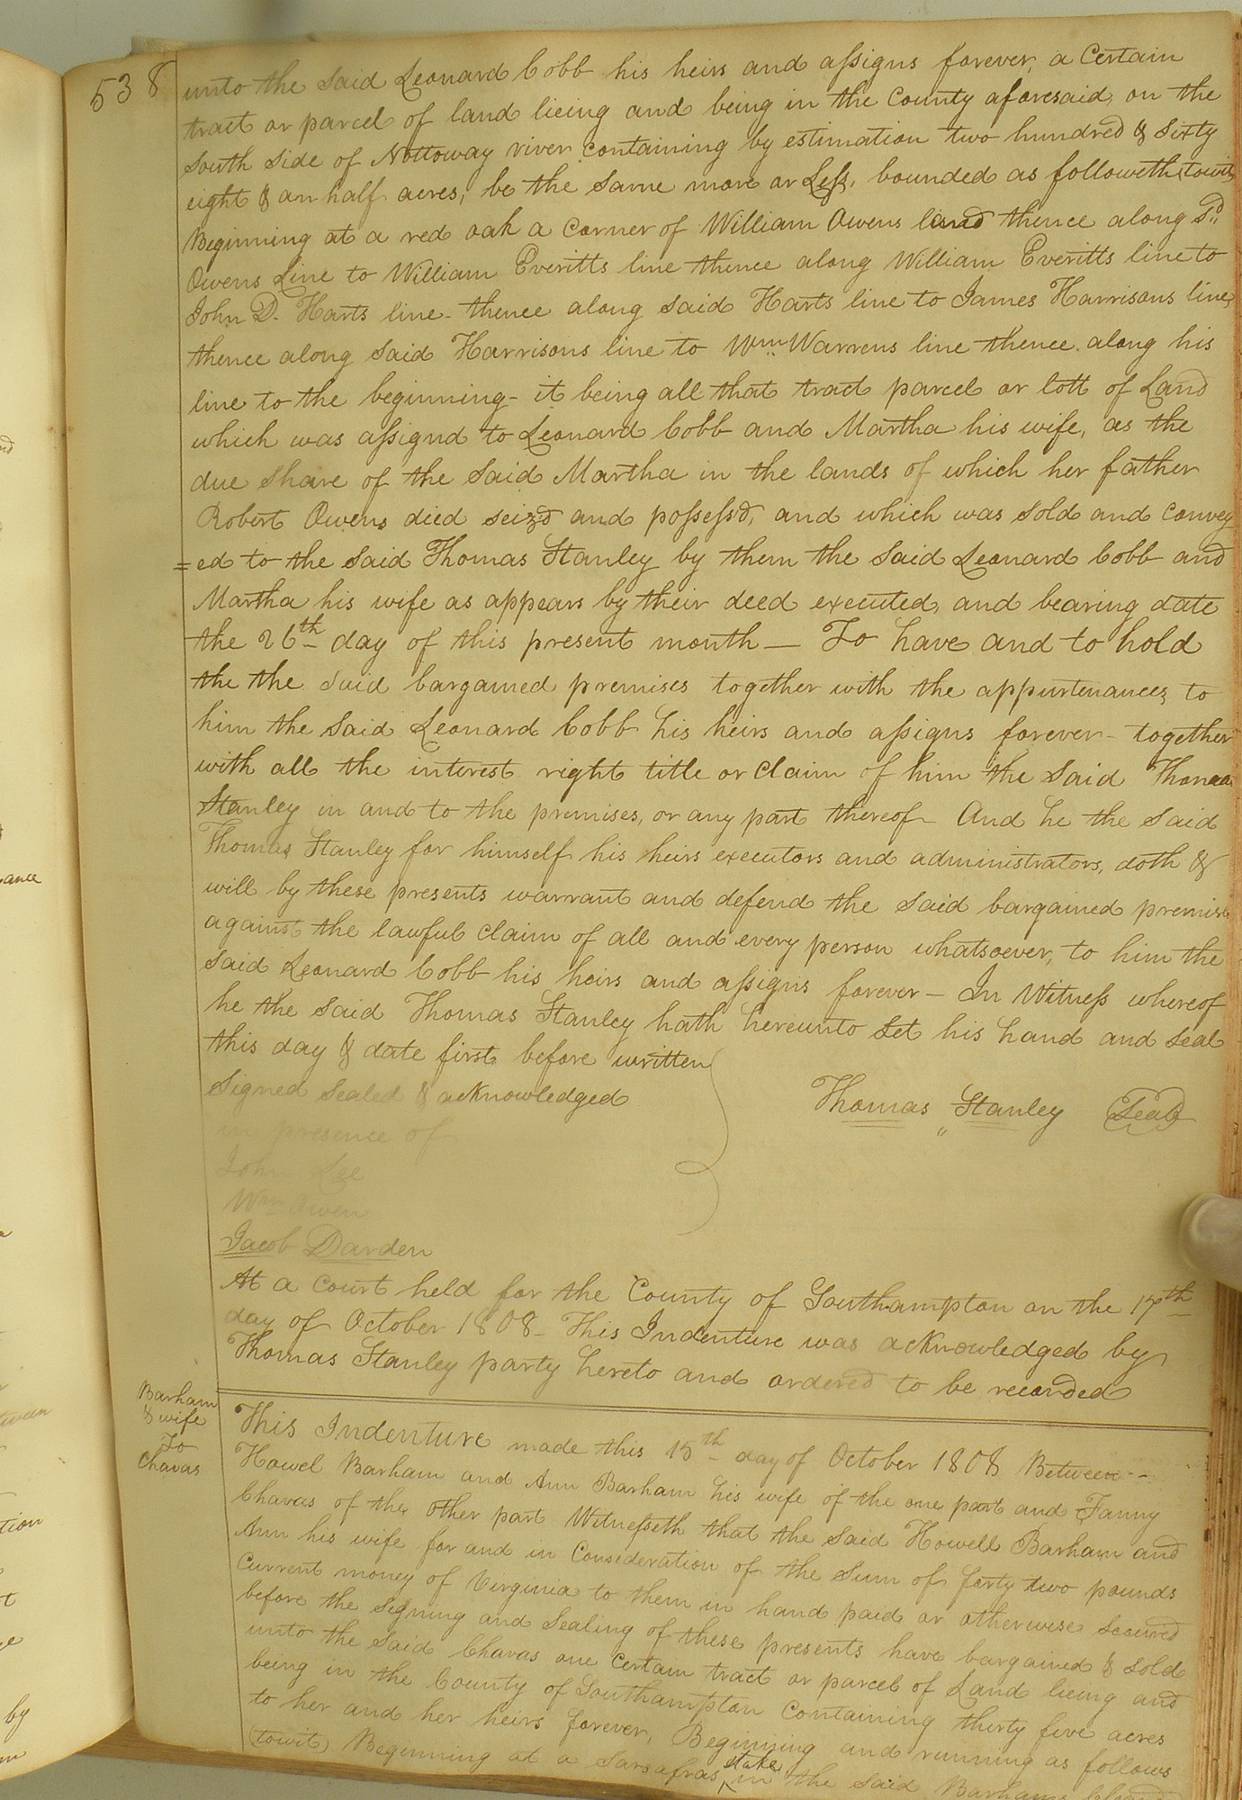 538
unto the said Leonard Cobb his heirs and assigns forever, a Certain
tract or parcel of land lieing and being in the County aforesaid, on the
South side of Nottoway river containing by estimation two hundred & sixty
eight & an half acres, be the same more or Less, bounded as followeth (towit)
Beginning at a red oak a corner of William Owens land thence along Sd.
Owens Line to William Everitts line thence along William Everitts line to
John D. Harts line - thence along said Harts line to James Harrisons line,
thence along said Harrisons line to Wm Warrens line thence along his
line to the beginning - it being all that tract parcel or lott of Land
which was assignd to Leonard Cobb and Martha his wife, as the
due share of the said Martha in the lands of which her father
Robert Owens died seizd and possess'd, and which was sold and convey
=ed to the said Thomas Stanley by them the said Leonard Cobb and
Martha his wife as appears by their deed executed, and bearing date
the 26th day of this present month — To have and to hold
the the said bargained premises together with the appurtenances, to
him the said Leonard Cobb his heirs and assigns forever - together
with all the interest right title or claim of him the said Thomas
Stanley in and to the premises, or any part thereof - And he the said
Thomas Stanley for himself his heirs executors and administrators, doth &
will by these presents warrant and defend the said bargained premises
against the lawful claim of all and every person whatsoever, to him the
said Leonard Cobb his heirs and assigns forever — In Witness whereof
he the said Thomas Stanley hath hereunto set his hand and seal
this day & date first before written
Signed Sealed & acknowledged
Thomas Stanley (Seal)
in presence of
John Lee
Wm Owen
Jacob Darden
At a Court held for the County of Southampton on the 17th
day of October 1808 - This Indenture was acknowledged by
Thomas Stanley party hereto and ordered to be recorded
Barham
& wife
To
Chavas
This Indenture made this 15th day of October 1808 Between --
Howel Barham and Ann Barham his wife of the one part and Fanny
Chavas of the other part Witnesseth that the said Howell Barham and
Ann his wife for and in Consideration of the Sum of forty two pounds
Current money of Virginia to them in hand paid or otherwise secured
before the signing and sealing of these presents have bargained & sold
unto the said Chavas one Certain tract or parcel of Land lieing and
being in the County of Southampton Containing thirty five acres
to her and her heirs forever, Beginning and running as follows
(towit) Beginning at a Sarsafras stake in the said Barhams